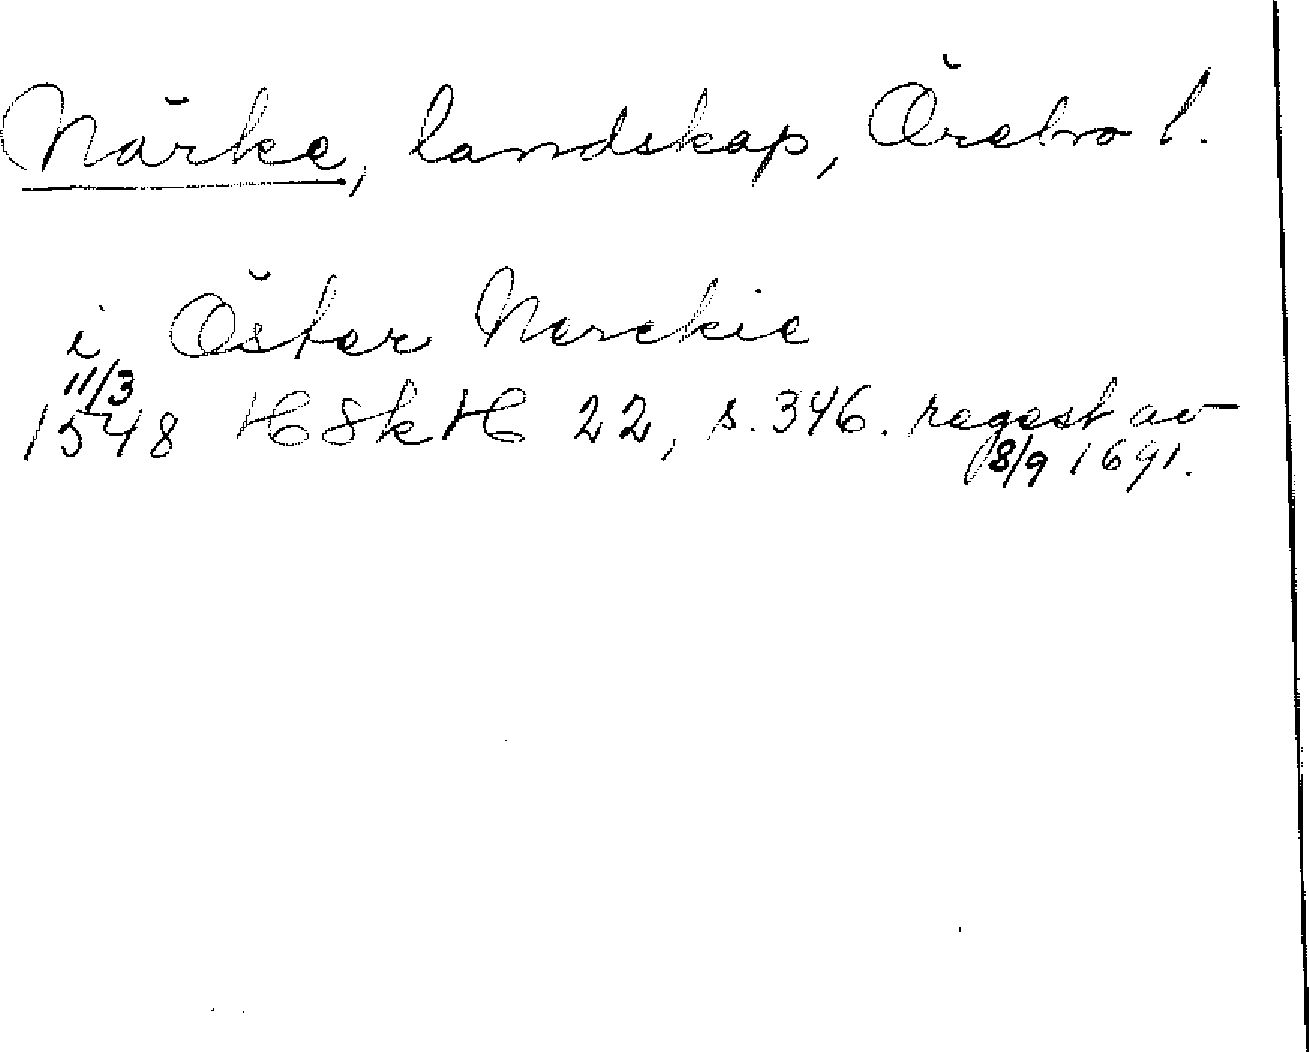 Närke, landskap, Örebro l.
i Öster Nerekie
11/3
1548 HSkH 22, s. 346. regest av
8/9 1691.